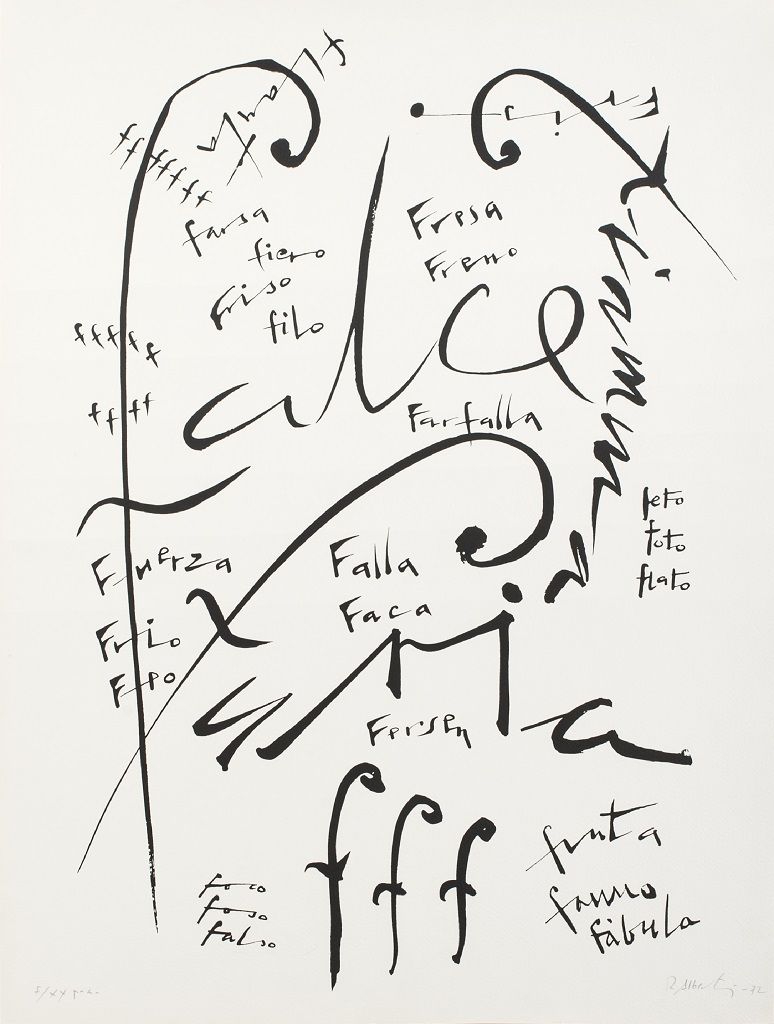 fffffff
farsa
fiero
friso
filo
Fresa
Freno
falce
fiamma
fffff
ffff
Farfalla
feto
foto
flato
Fuerza
Frio
Feo
Falla
Faca
furia
Fersen
fff
foco
foso
falso
fruta
fauno
fàbula
R. Alberti -72